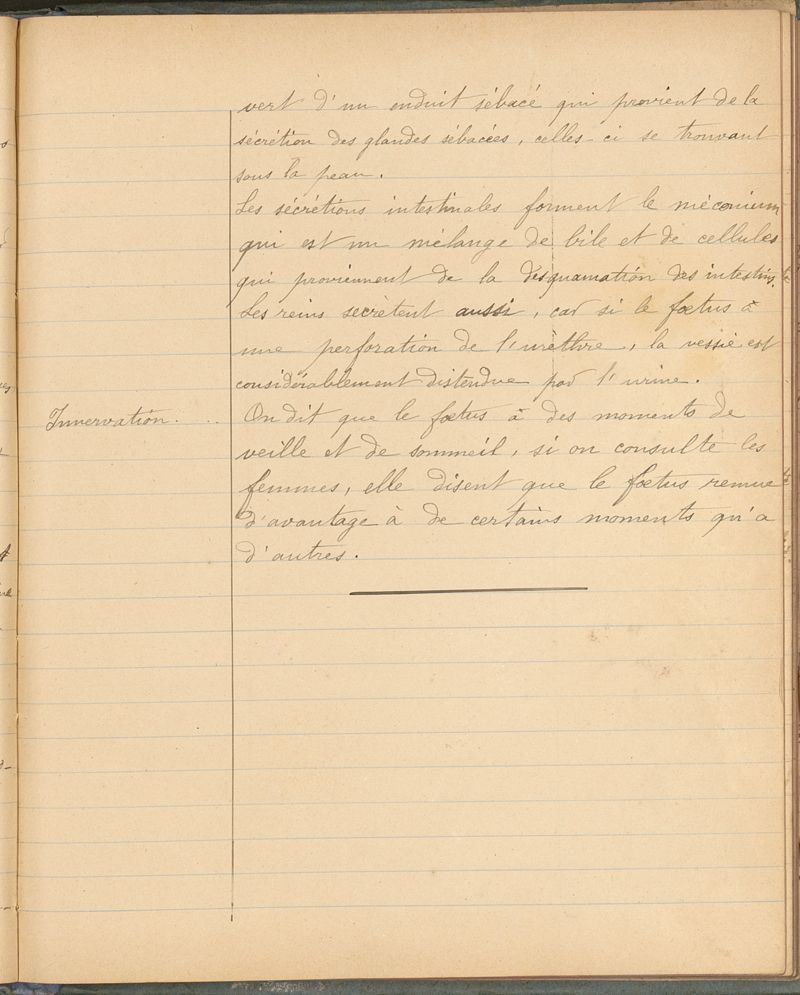 vert d'un enduit sébacé qui provient de la
sécrétion des glandes sébacées, celles-ci se trouvant
sous la peau.
Les sécrétions intestinales forment le méconium
qui est un mélange de bile et de cellules
qui proviennent de la desquamation des intestins.
Les reins secrètent aussi, car si le fœtus à
une perforation de l'urèthre, la vessie est
considérablement distendue par l'urine.
Innervation. ... On dit que le fœtus à des moments de
veille et de sommeil, si on consulte les
femmes, elle disent que le fœtus remue
d'avantage à de certains moments qu'a
d'autres.